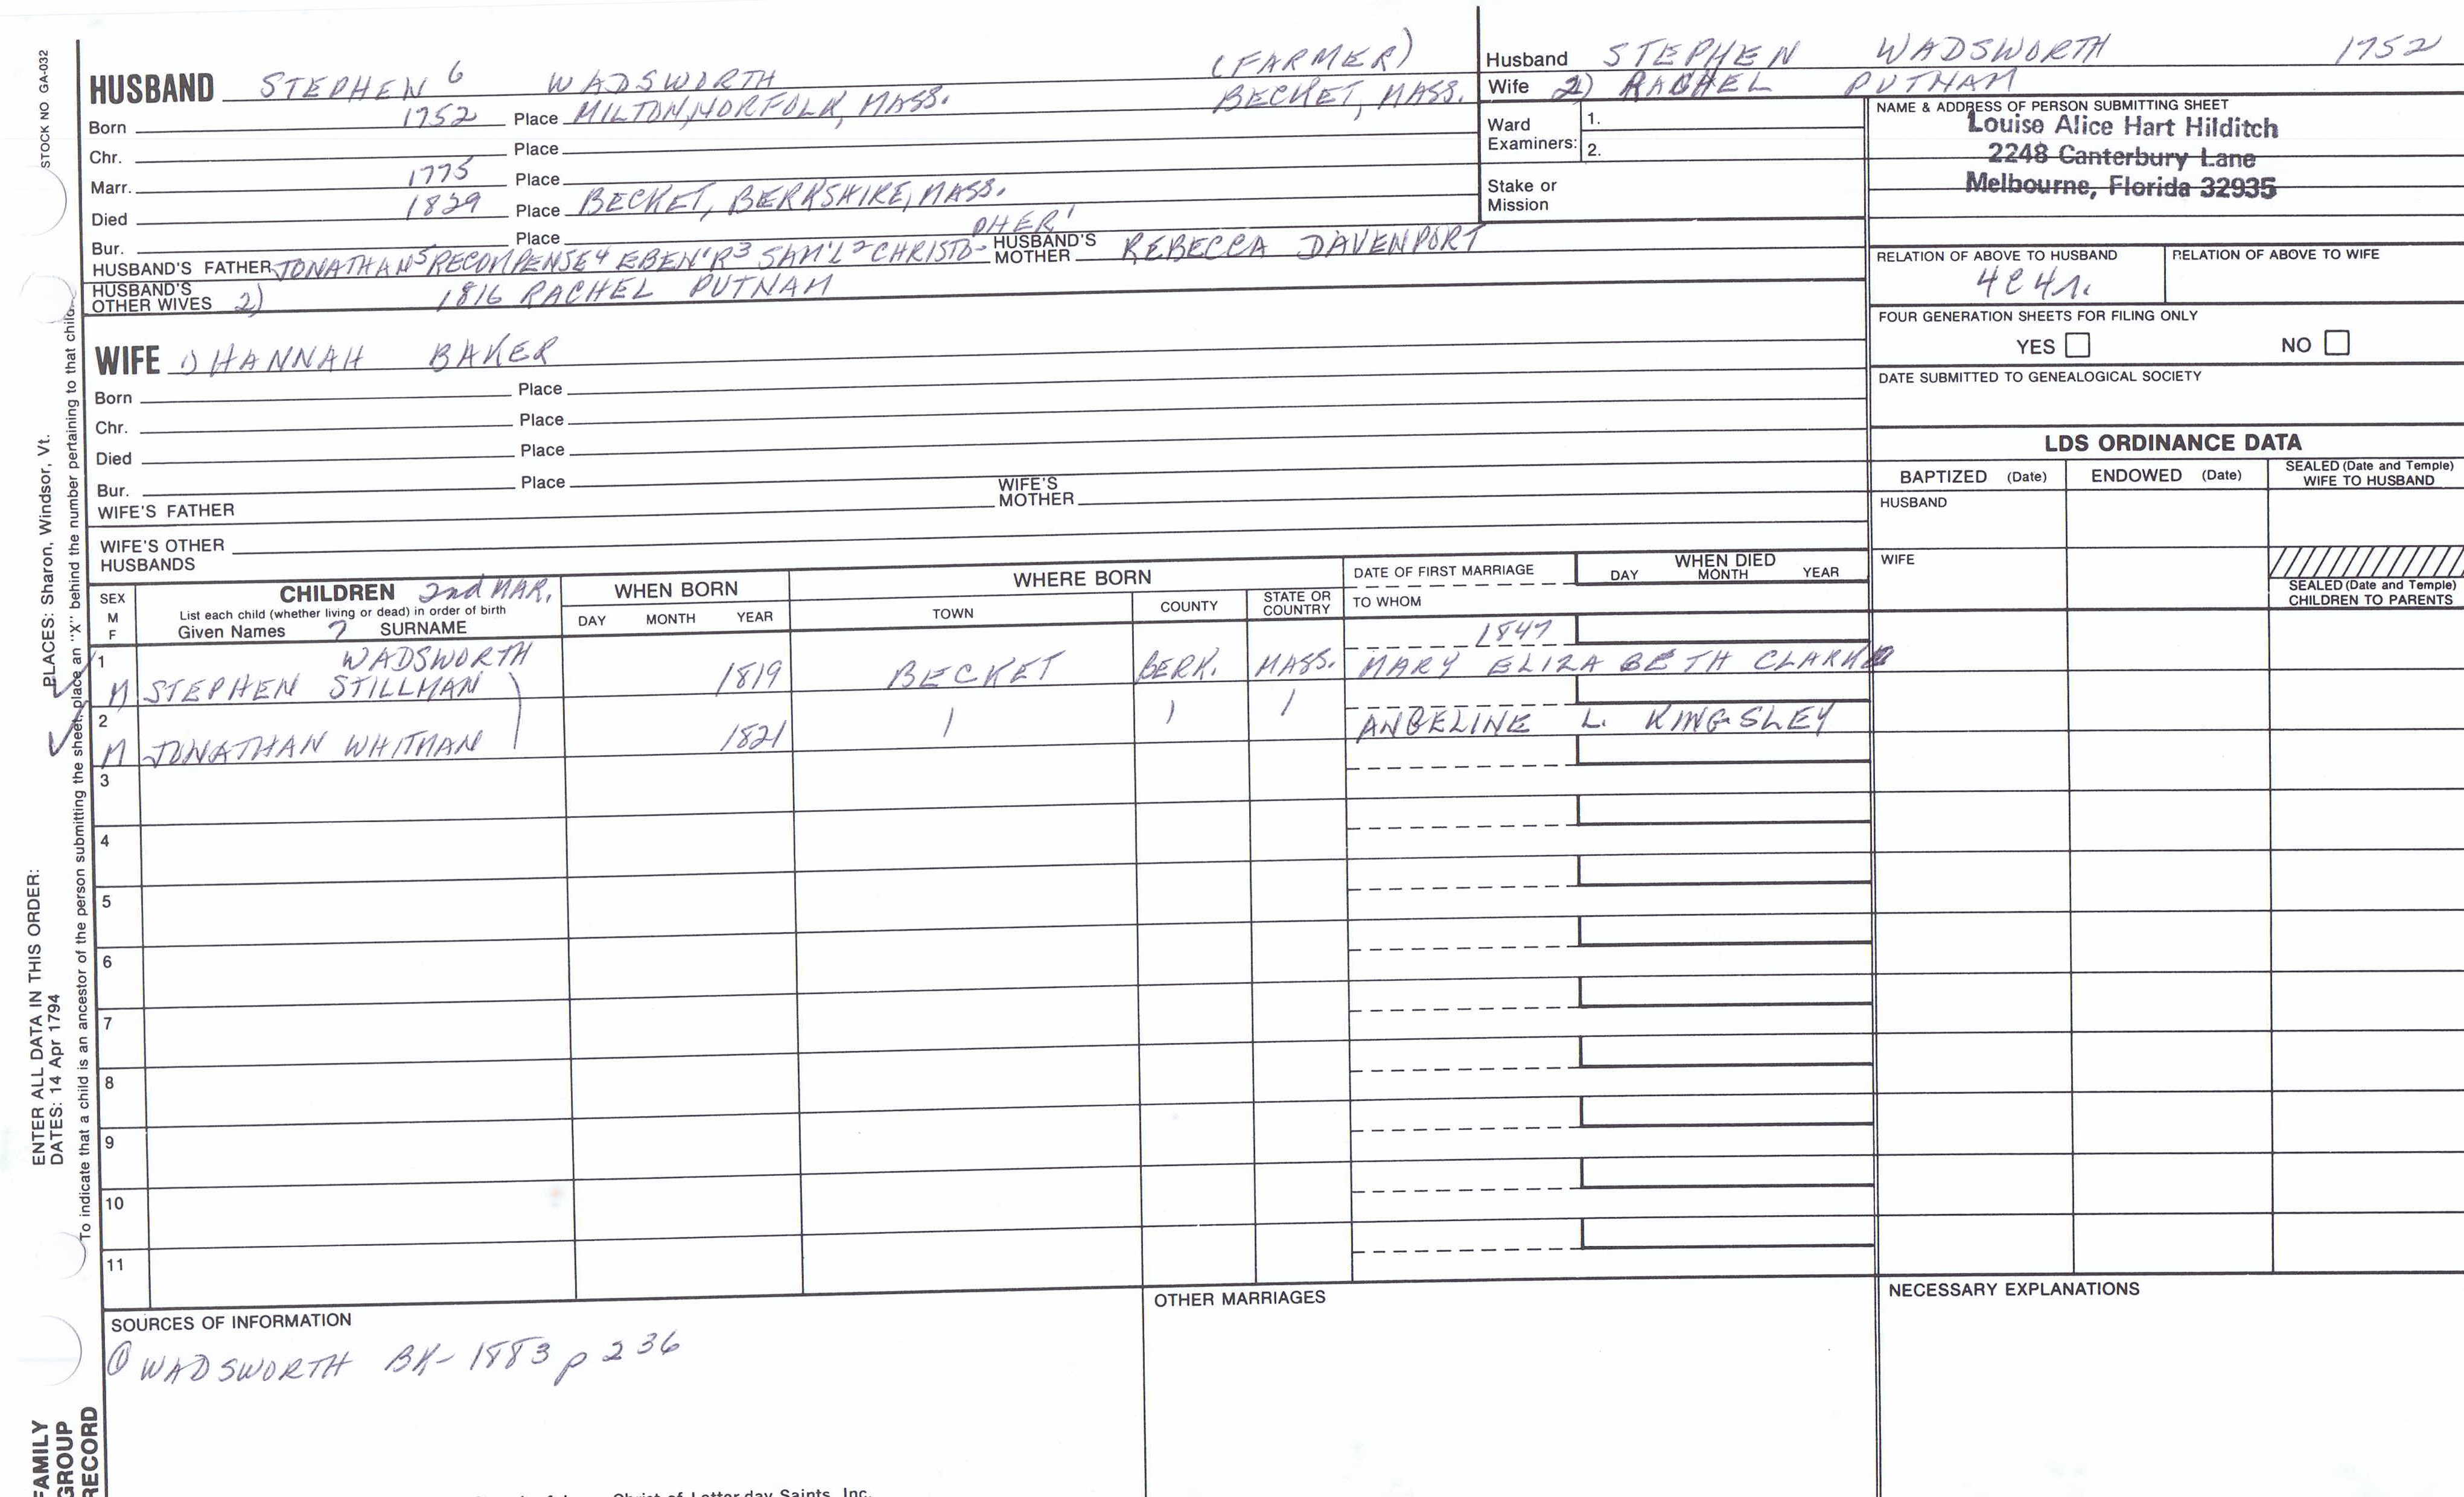 STOCK NO GA-032
PLACES: Sharon, Windsor, Vt.
ENTER ALL DATA IN THIS ORDER:
DATES: 14 Apr 1794
To indicate that a child is an ancestor of the person submitting the sheet, place an "X" behind the number pertaining to that child.
FAMILY
GROUP
RECORD
HUSBAND STEPHEN 6 WADSWORTH (FARMER)
Born 1752 Place MILTON, NORFOLK, MASS. BECKET, MASS.
Chr. Place
Marr. 1775 Place
Died 1829 Place BECKET, BERKSHIRE, MASS.
Bur. Place
HUSBAND'S FATHER JONATHAN 5 RECOMPENSE 4 EBEN'R 3 SAM'L 2 CHRISTO-PHER 1 HUSBAND'S MOTHER REBECCA DAVENPORT
HUSBAND'S OTHER WIVES 2) 1816 RACHEL PUTNAM
WIFE 1) HANNAH BAKER
Born Place
Chr. Place
Died Place
Bur. Place
WIFE'S FATHER WIFE'S MOTHER
WIFE'S OTHER HUSBANDS
Husband STEPHEN WADSWORTH 1752
Wife 2) RACHEL PUTNAM
Ward Examiners: 1.
2.
Stake or Mission
NAME & ADDRESS OF PERSON SUBMITTING SHEET
Louise Alice Hart Hilditch
2248 Canterbury Lane
Melbourne, Florida 32935
RELATION OF ABOVE TO HUSBAND RELATION OF ABOVE TO WIFE
4C4r.
FOUR GENERATION SHEETS FOR FILING ONLY
YES NO
DATE SUBMITTED TO GENEALOGICAL SOCIETY
LDS ORDINANCE DATA
BAPTIZED (Date) ENDOWED (Date) SEALED (Date and Temple) WIFE TO HUSBAND
HUSBAND
WIFE
SEALED (Date and Temple) CHILDREN TO PARENTS
SEX M F CHILDREN 2nd MAR. WHEN BORN WHERE BORN DATE OF FIRST MARRIAGE WHEN DIED
List each child (whether living or dead) in order of birth
Given Names ? SURNAME DAY MONTH YEAR TOWN COUNTY STATE OR COUNTRY TO WHOM DAY MONTH YEAR
WADSWORTH 1847
1 M STEPHEN STILLMAN 1819 BECKET BERK. MASS. MARY ELIZABETH CLARK
2 M JONATHAN WHITMAN 1821 ANGELINE L. KINGSLEY
3
4
5
6
7
8
9
10
11
SOURCES OF INFORMATION
1 WADSWORTH BK- 1883 p 236
OTHER MARRIAGES
NECESSARY EXPLANATIONS
Christ of Latter-day Saints, Inc.